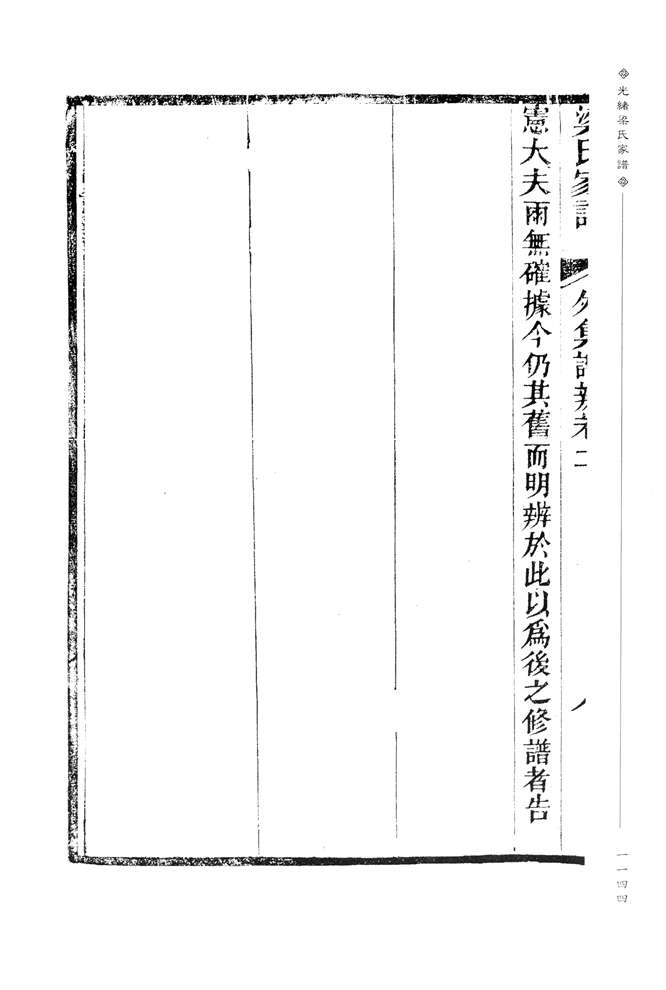 光緒梁氏家譜
一一四四
梁氏家譜 外集譜辨卷二 八
憲大夫兩無確據今仍其舊而明辨於此以爲後之修譜者告